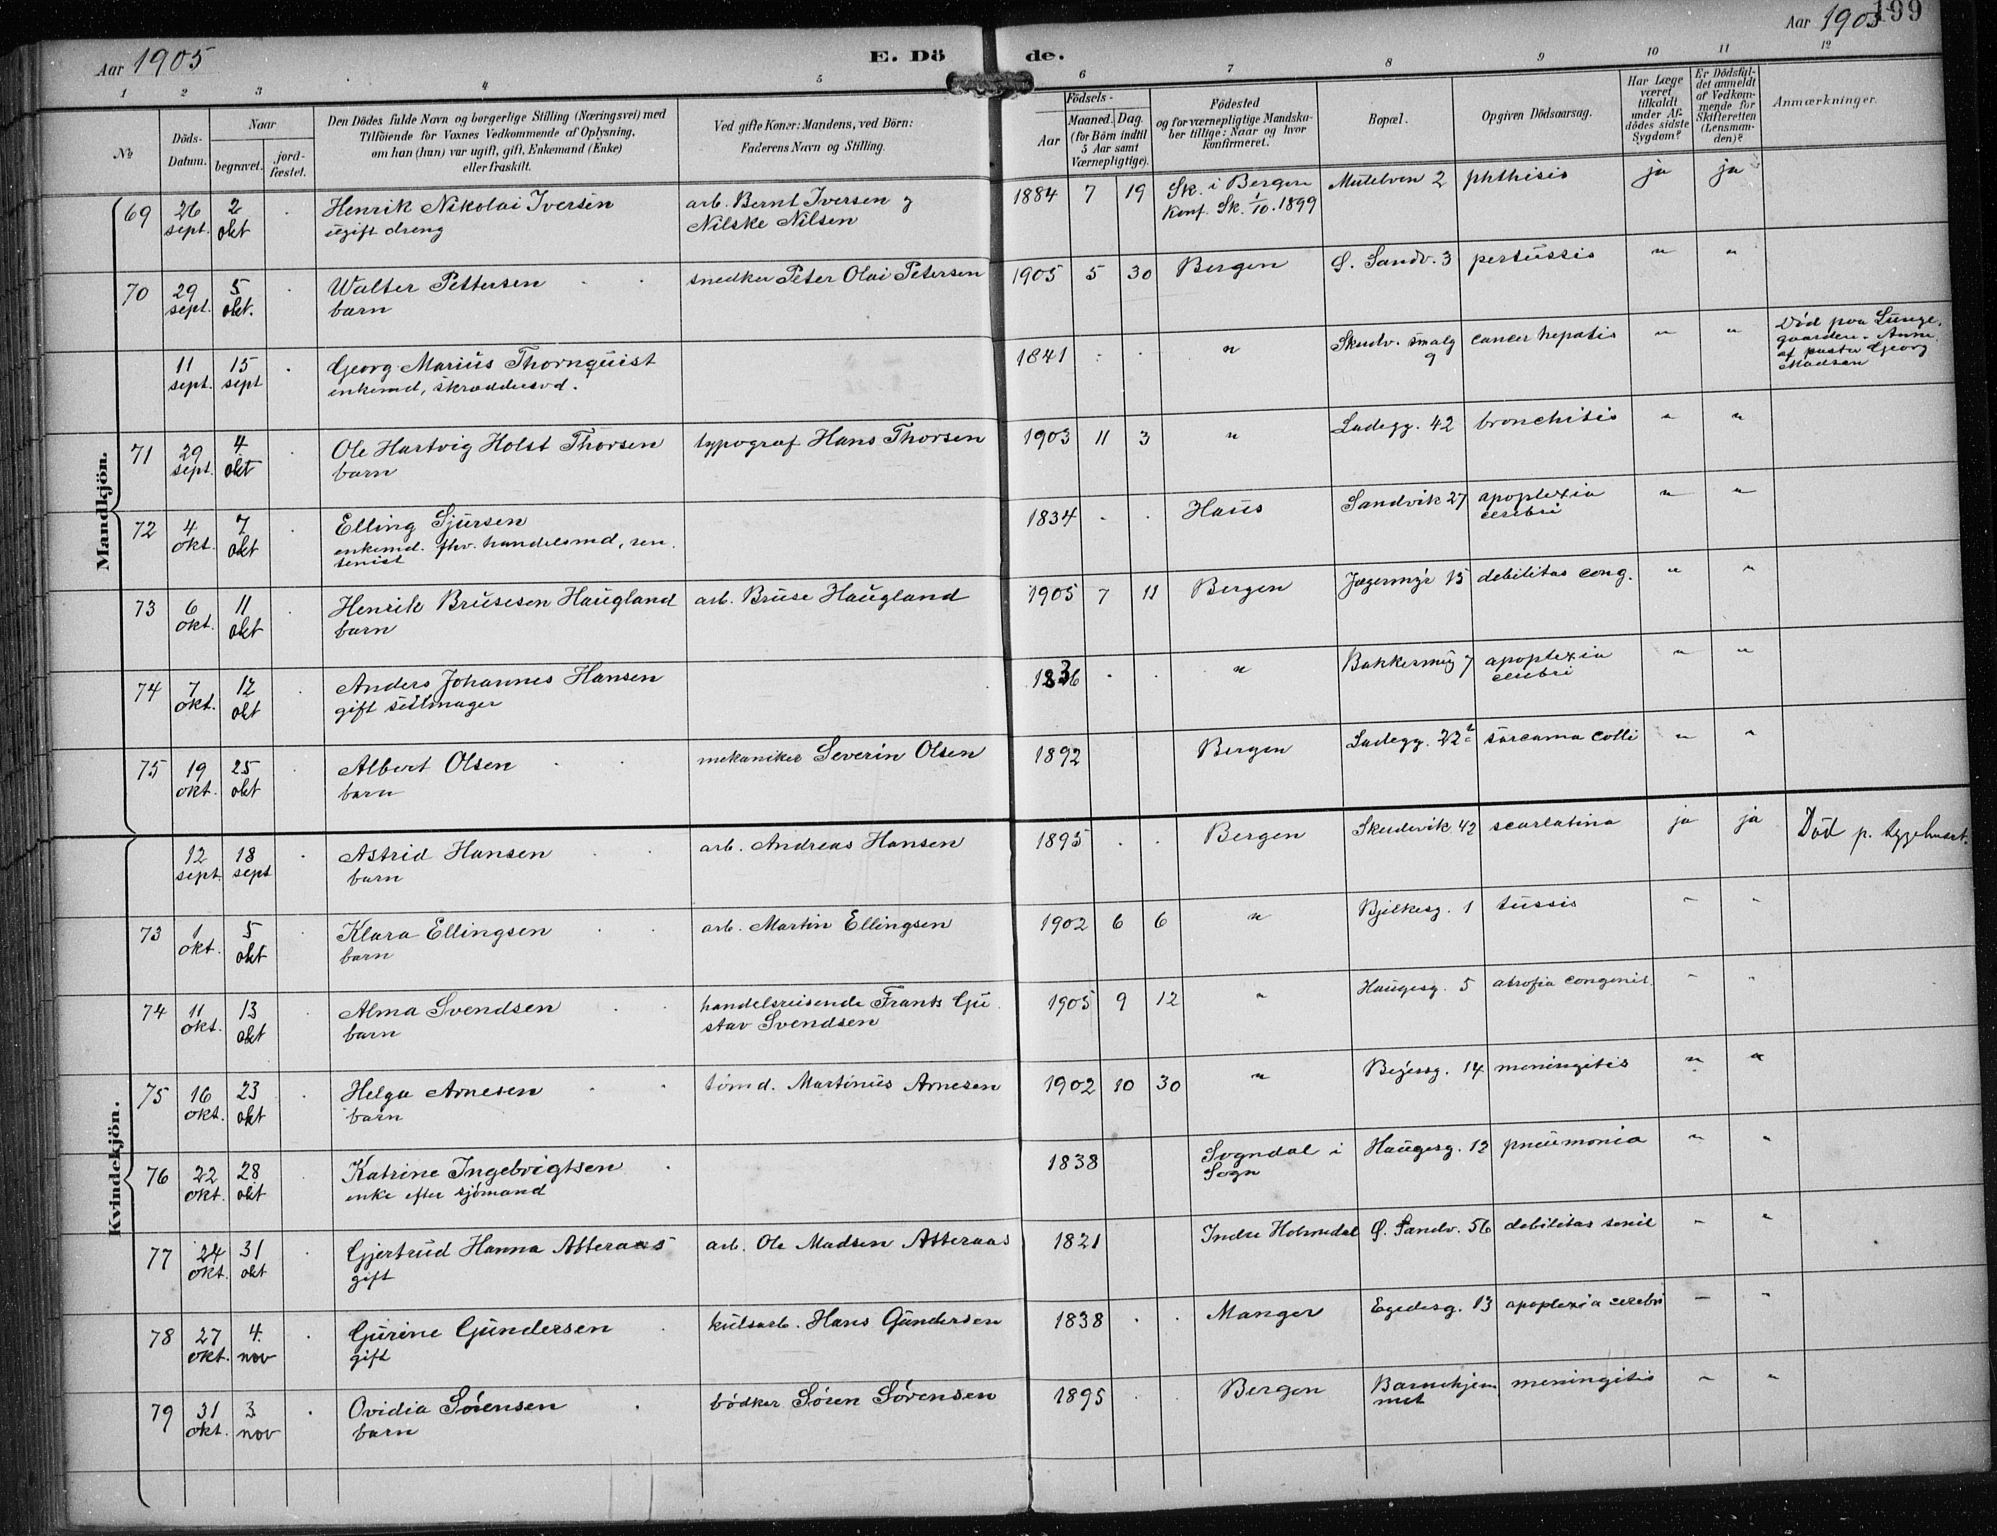 Aar 1905
E. Döde.
Aar 1905
199
1 2 3 4 5 6 7 8 9 10 11 12
No
Döds-Datum.
Naar
begravet.
jord-fæstet.
Den Dödes fulde Navn og borgerlige Stilling (Næringsvei) med
Tilföiende for Voxnes Vedkommende af Oplysning,
om han (hun) var ugift, gift, Enkemand (Enke)
eller fraskilt.
Ved gifte Koner: Mandens, ved Börn:
Faderens Navn og Stilling.
Födsels-
Aar
Maaned. Dag.
(for Börn indtil
5 Aar samt
Værnepligtige).
Födested
og for værnepligtige Mandska-
ber tillige: Naar og hvor
konfirmeret.
Bopæl.
Opgiven Dödsaarsag.
Har Læge
været
tilkaldt
under Af-
dödes sidste
Sygdom?
Er Dödsfal-
det anmeldt
af Vedkom-
mende for
Skifteretten
(Lensman-
den)?
Anmærkninger.
Mandkjön.
69 26 sept. 2 okt Henrik Nikolai Iversen arb. Bernt Iversen og 1884 7 19 Sk. i Bergen Mulelven 2 phthisis ja ja
ugift dreng Nilske Nilsen Konf. Sk. 1/10.1899
70 29 sept. 5 okt. Walter Pettersen snedker Peter Olai Petersen 1905 5 30 Bergen Ø. Sandv. 3 pertussis " "
barn
11 sept. 15 sept Georg Marius Thornquist 1841 " Skudv. smalg 9 cancer hepatis " " Död paa Lunge-
gaarden. Anm.
af pastor Georg
Madsen
enkemd, skræddersvd.
71 29 sept. 4 okt Ole Hartvig Holst Thorsen typograf Hans Thorsen 1903 11 3 " Ladegg. 42 bronchitis " "
barn
72 4 okt. 7 okt Elling Sjursen 1834 Haus Sandvik 27 apoplexia cerebri " "
enkemd. fhv. handelsmd, ren-
tenist
73 6 okt. 11 okt Henrik Brusesen Haugland arb. Bruse Haugland 1905 7 11 Bergen Jægermyr 15 debilitas cong. " "
barn
74 7 okt. 12 okt Anders Johannes Hansen 1836 " Bakkersmug 7 apoplexia cerebri " "
gift
75 19 okt. 25 okt Albert Olsen mekaniker Severin Olsen 1892 Bergen Ladegg. 22 sarcama colli " "
barn
Kvindekjön.
12 sept. 18 sept Astrid Hansen arb. Andreas Hansen 1895 Bergen Skudevik 42 scarlatina ja ja Död p. sygehuset.
barn
73 1 okt. 5 okt Klara Ellingsen arb. Martin Ellingsen 1902 6 6 " Bjelkesg. 1 tussis " "
barn
74 11 okt. 13 okt Alma Svendsen handelsreisende Frants Gu- 1905 9 12 " Haugesg. 5 atrofia congenit. " "
barn stav Svendsen
75 16 okt. 23 okt Helga Arnesen tømd. Martinus Arnesen 1902 10 30 " Beyersg. 14 meningitis " "
barn
76 22 okt. 28 okt Katrine Ingebrigtsen 1838 Sogndal i Sogn Haugesg. 12 pneumonia " "
enke efter sjömand
77 24 okt. 31 okt Gjertrud Hanna Atteraas arb. Ole Madsen Atteraas 1821 Indre Holmedal Ø. Sandv. 56 debilitas senil " "
gift
78 27 okt. 4 nov Gurine Gundersen kulsarb. Hans Gundersen 1838 Manger Egedesg. 13 apoplexia cerebri " "
gift
79 31 okt. 3 nov Ovidia Sørensen bödker Søren Sørensen 1895 Bergen Barnehjemmet meningitis " "
barn